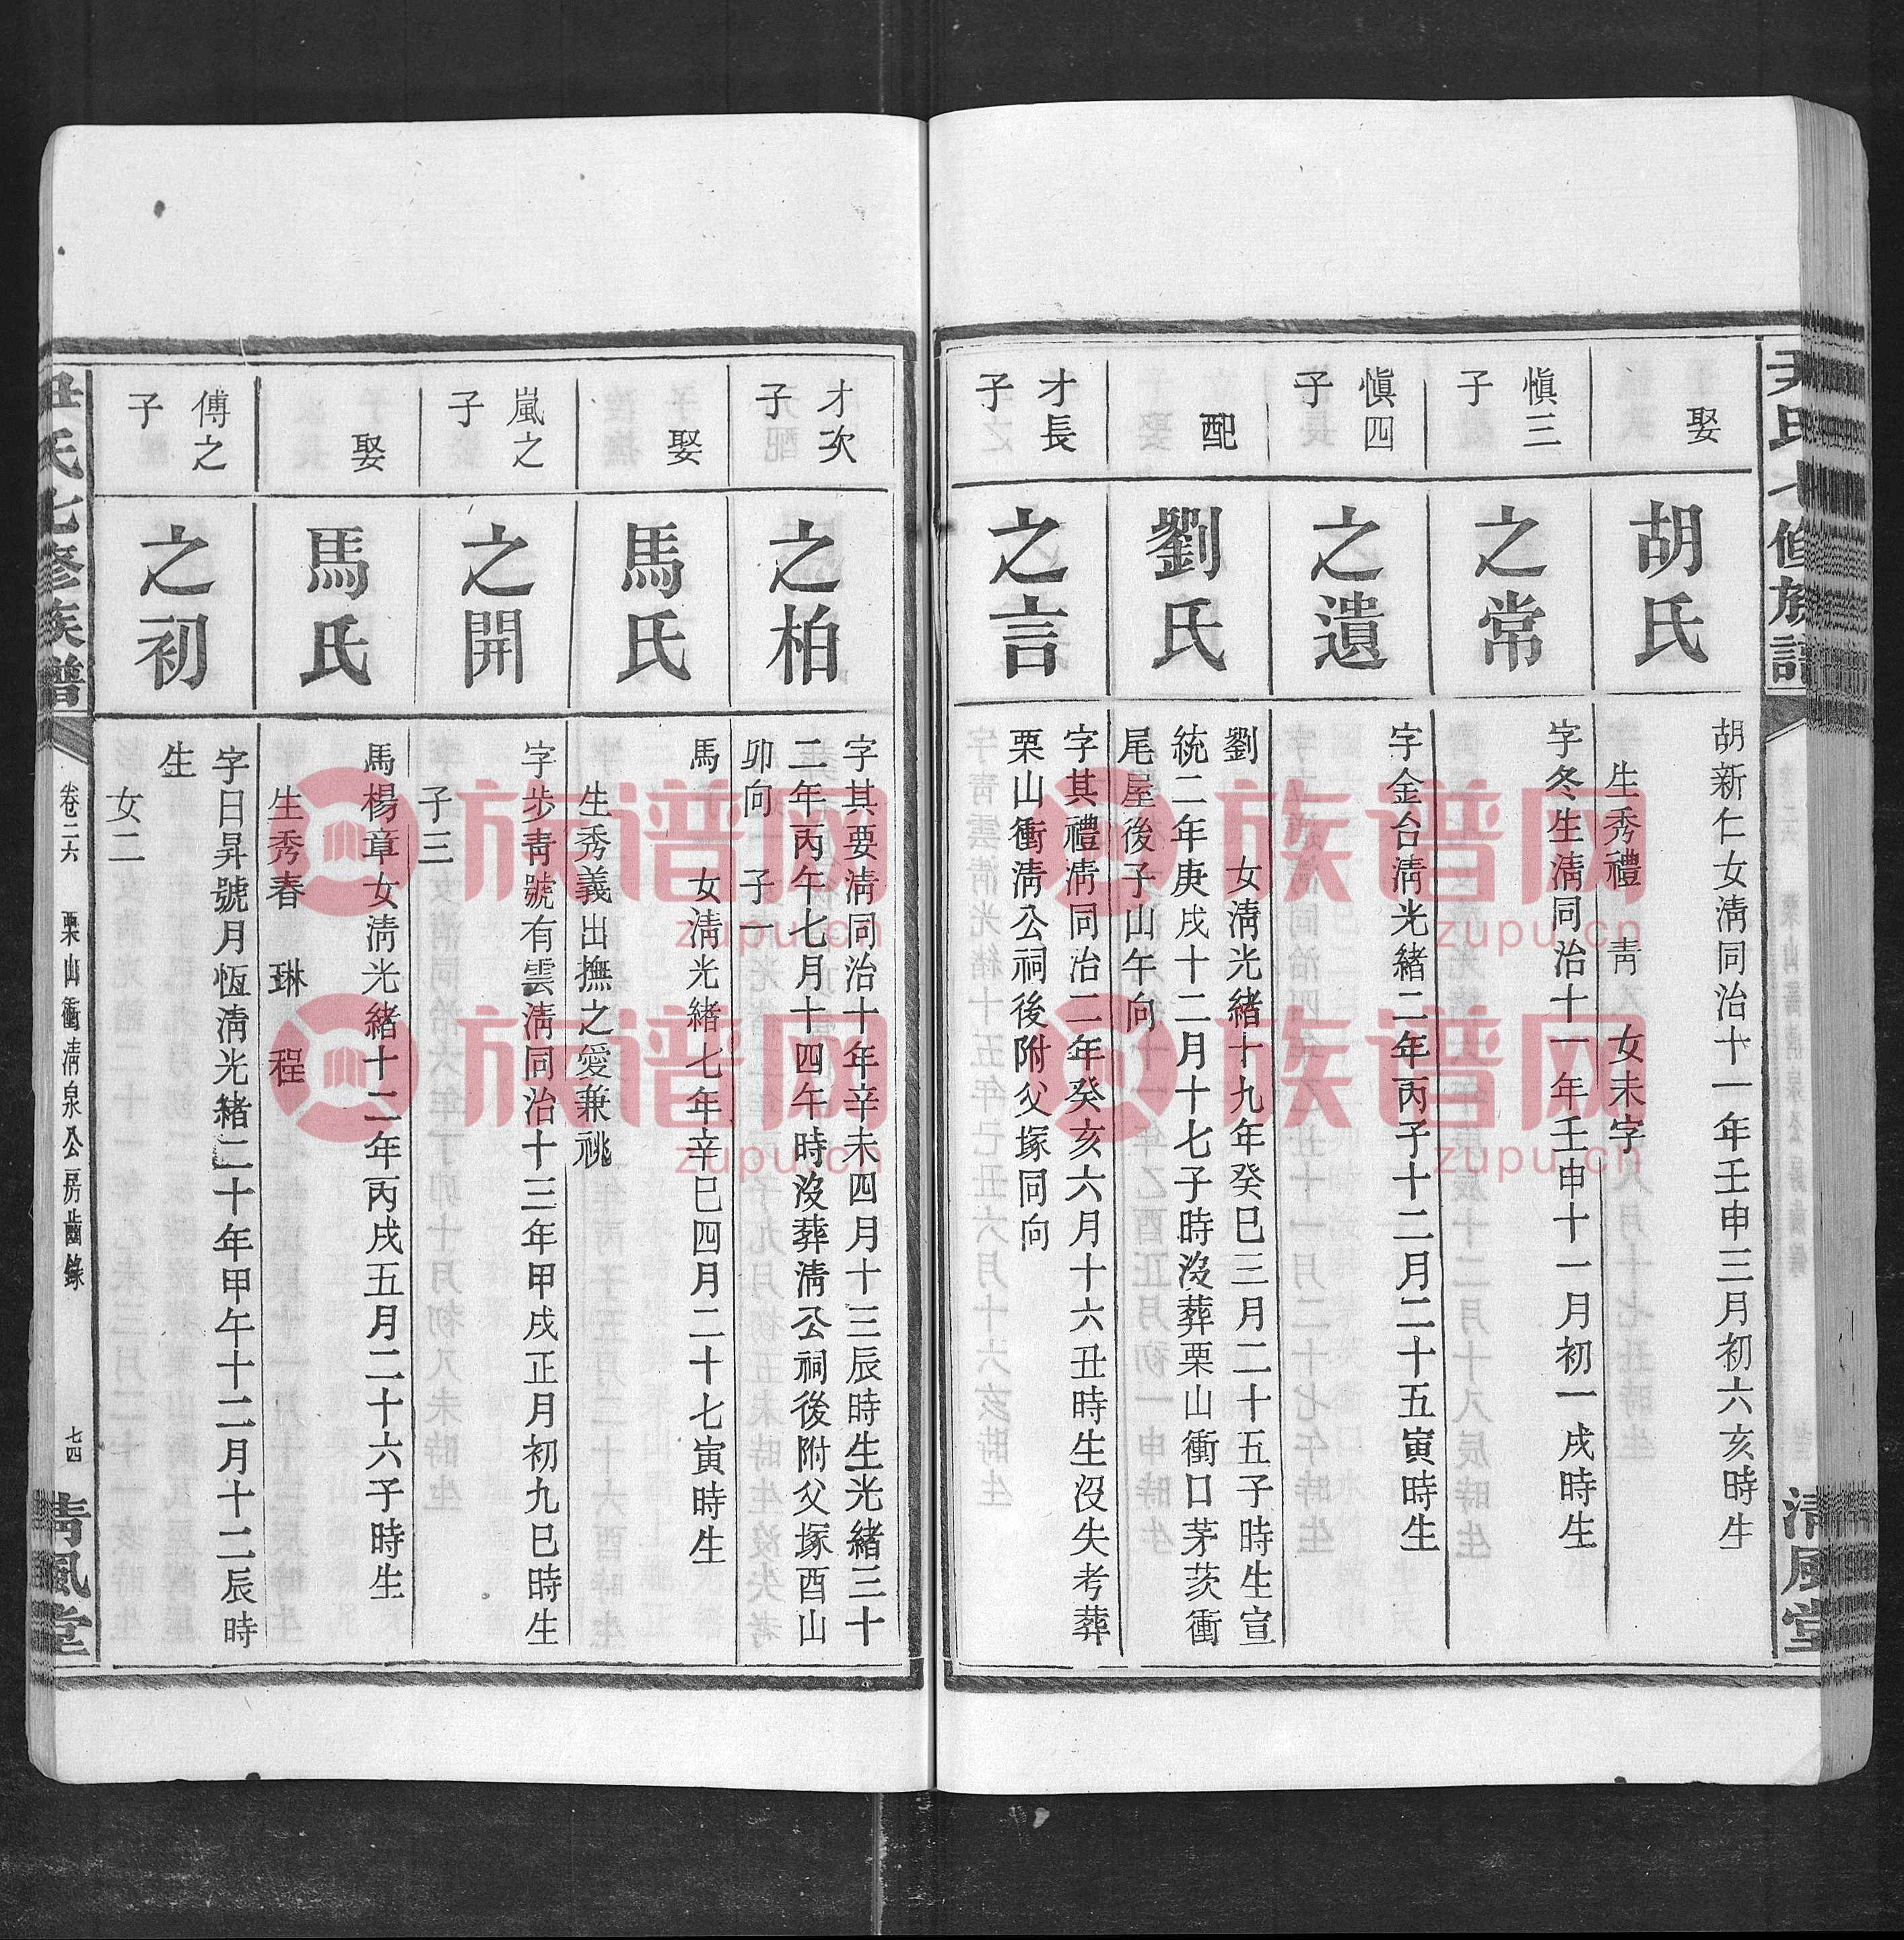 尹氏七修族譜
清風堂
娶
胡氏
胡新仁女淸同治十一年壬申三月初六亥時生
生秀禮　靑　女未字
愼三
子
之常
字冬生淸同治十一年壬申十一月初一戌時生
愼四
子
之遺
字金台淸光緖二年丙子十二月二十五寅時生
配
劉氏
劉　女淸光緖十九年癸巳三月二十五子時生宣
統二年庚戌十二月十七子時沒葬栗山衝口茅茨衝
尾屋後子山午向
才長
子
之言
字其禮淸同治二年癸亥六月十六丑時生沒失考葬
栗山衝淸公祠後附父塚同向
才次
子
之柏
字其要淸同治十年辛未四月十三辰時生光緖三十
二年丙午七月十四午時沒葬淸公祠後附父塚酉山
卯向　子一
娶
馬氏
馬　女淸光緖七年辛巳四月二十七寅時生
生秀義出撫之愛兼祧
嵐之
子
之開
字步靑號有雲淸同治十三年甲戌正月初九巳時生
子三
娶
馬氏
馬楊章女淸光緖十二年丙戌五月二十六子時生
生秀春　琳　程
傅之
子
之初
字日昇號月恆淸光緖二十年甲午十二月十二辰時
生
女二
尹氏七修族譜
卷二六　栗山衝淸泉公房齒錄
七四
清風堂
族谱网
zupu.cn
族谱网
zupu.cn
族谱网
zupu.cn
族谱网
zupu.cn